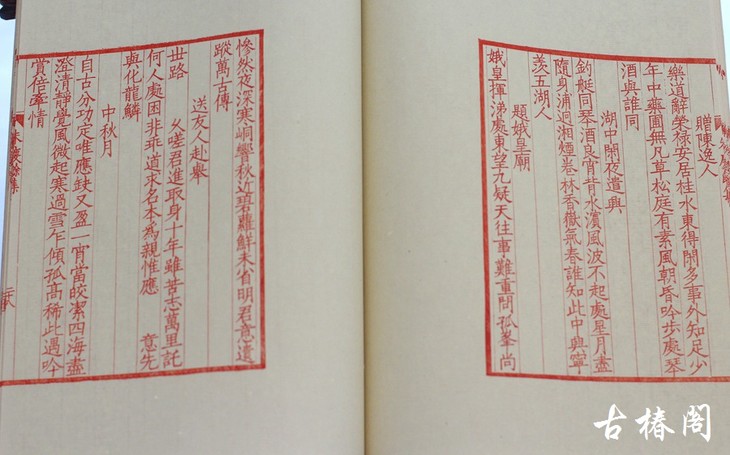 贈陳逸人
樂道辭榮祿安居桂水東得閑多事外知足少
年中藥圃無凡草松庭有素風朝昏吟步處琴
酒與誰同
湖中閑夜遣興
釣艇同琴酒良宵背水濱風波不起處星月盡
隨身浦迥湘煙卷林香嶽氣春誰知此中興寧
羨五湖人
題娥皇廟
娥皇揮涕處東望九疑天往事難重問孤峯尚
慘然夜深寒峒響秋近碧蘿鮮未省明君意遺
蹤萬古傳
送友人赴舉
世路 久嗟君進取身十年雖苦志萬里託
何人處困非乖道求名本為親惟應 意先
與化龍鱗
中秋月
自古分功定唯應缺又盈一宵當皎絜四海盡
澄清靜覺風微起寒過雪乍傾孤高稀此遇吟
賞倍牽情
古椿閣